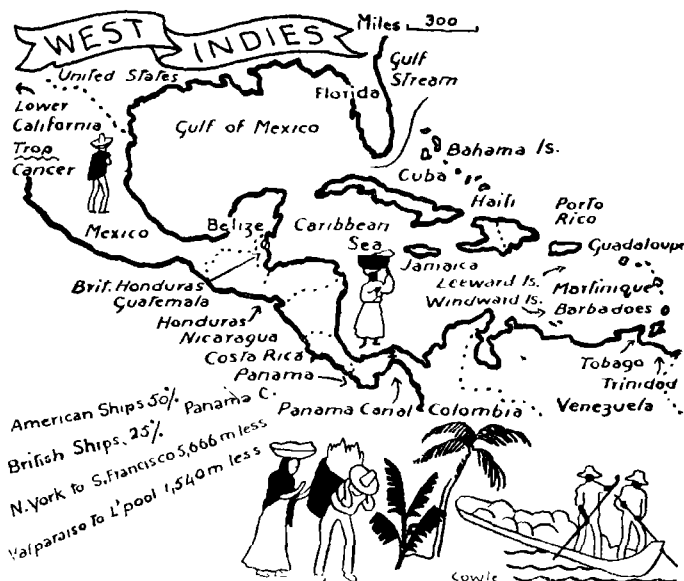 WEST INDIES
Miles 300
United States
Gulf
Stream
Florida
Lower
California
Trop
Cancer
Gulf of Mexico
Bahama Is.
Cuba
Haiti
Porto
Rico
Mexico
Belize
Caribbean
Sea
Guadaloupe
Jamaica
Leeward Is.
Windward Is.
Martinique
Barbadoes
Brit. Honduras
Guatemala
Honduras
Nicaragua
Costa Rica
Panama
Tobago
Trinidad
Panama Canal
Colombia
Venezuela
American Ships 50% Panama C.
British Ships, 25%
N.York to S.Francisco 5,666 m less
Valparaiso To L'pool 1,540 m less
Cowle